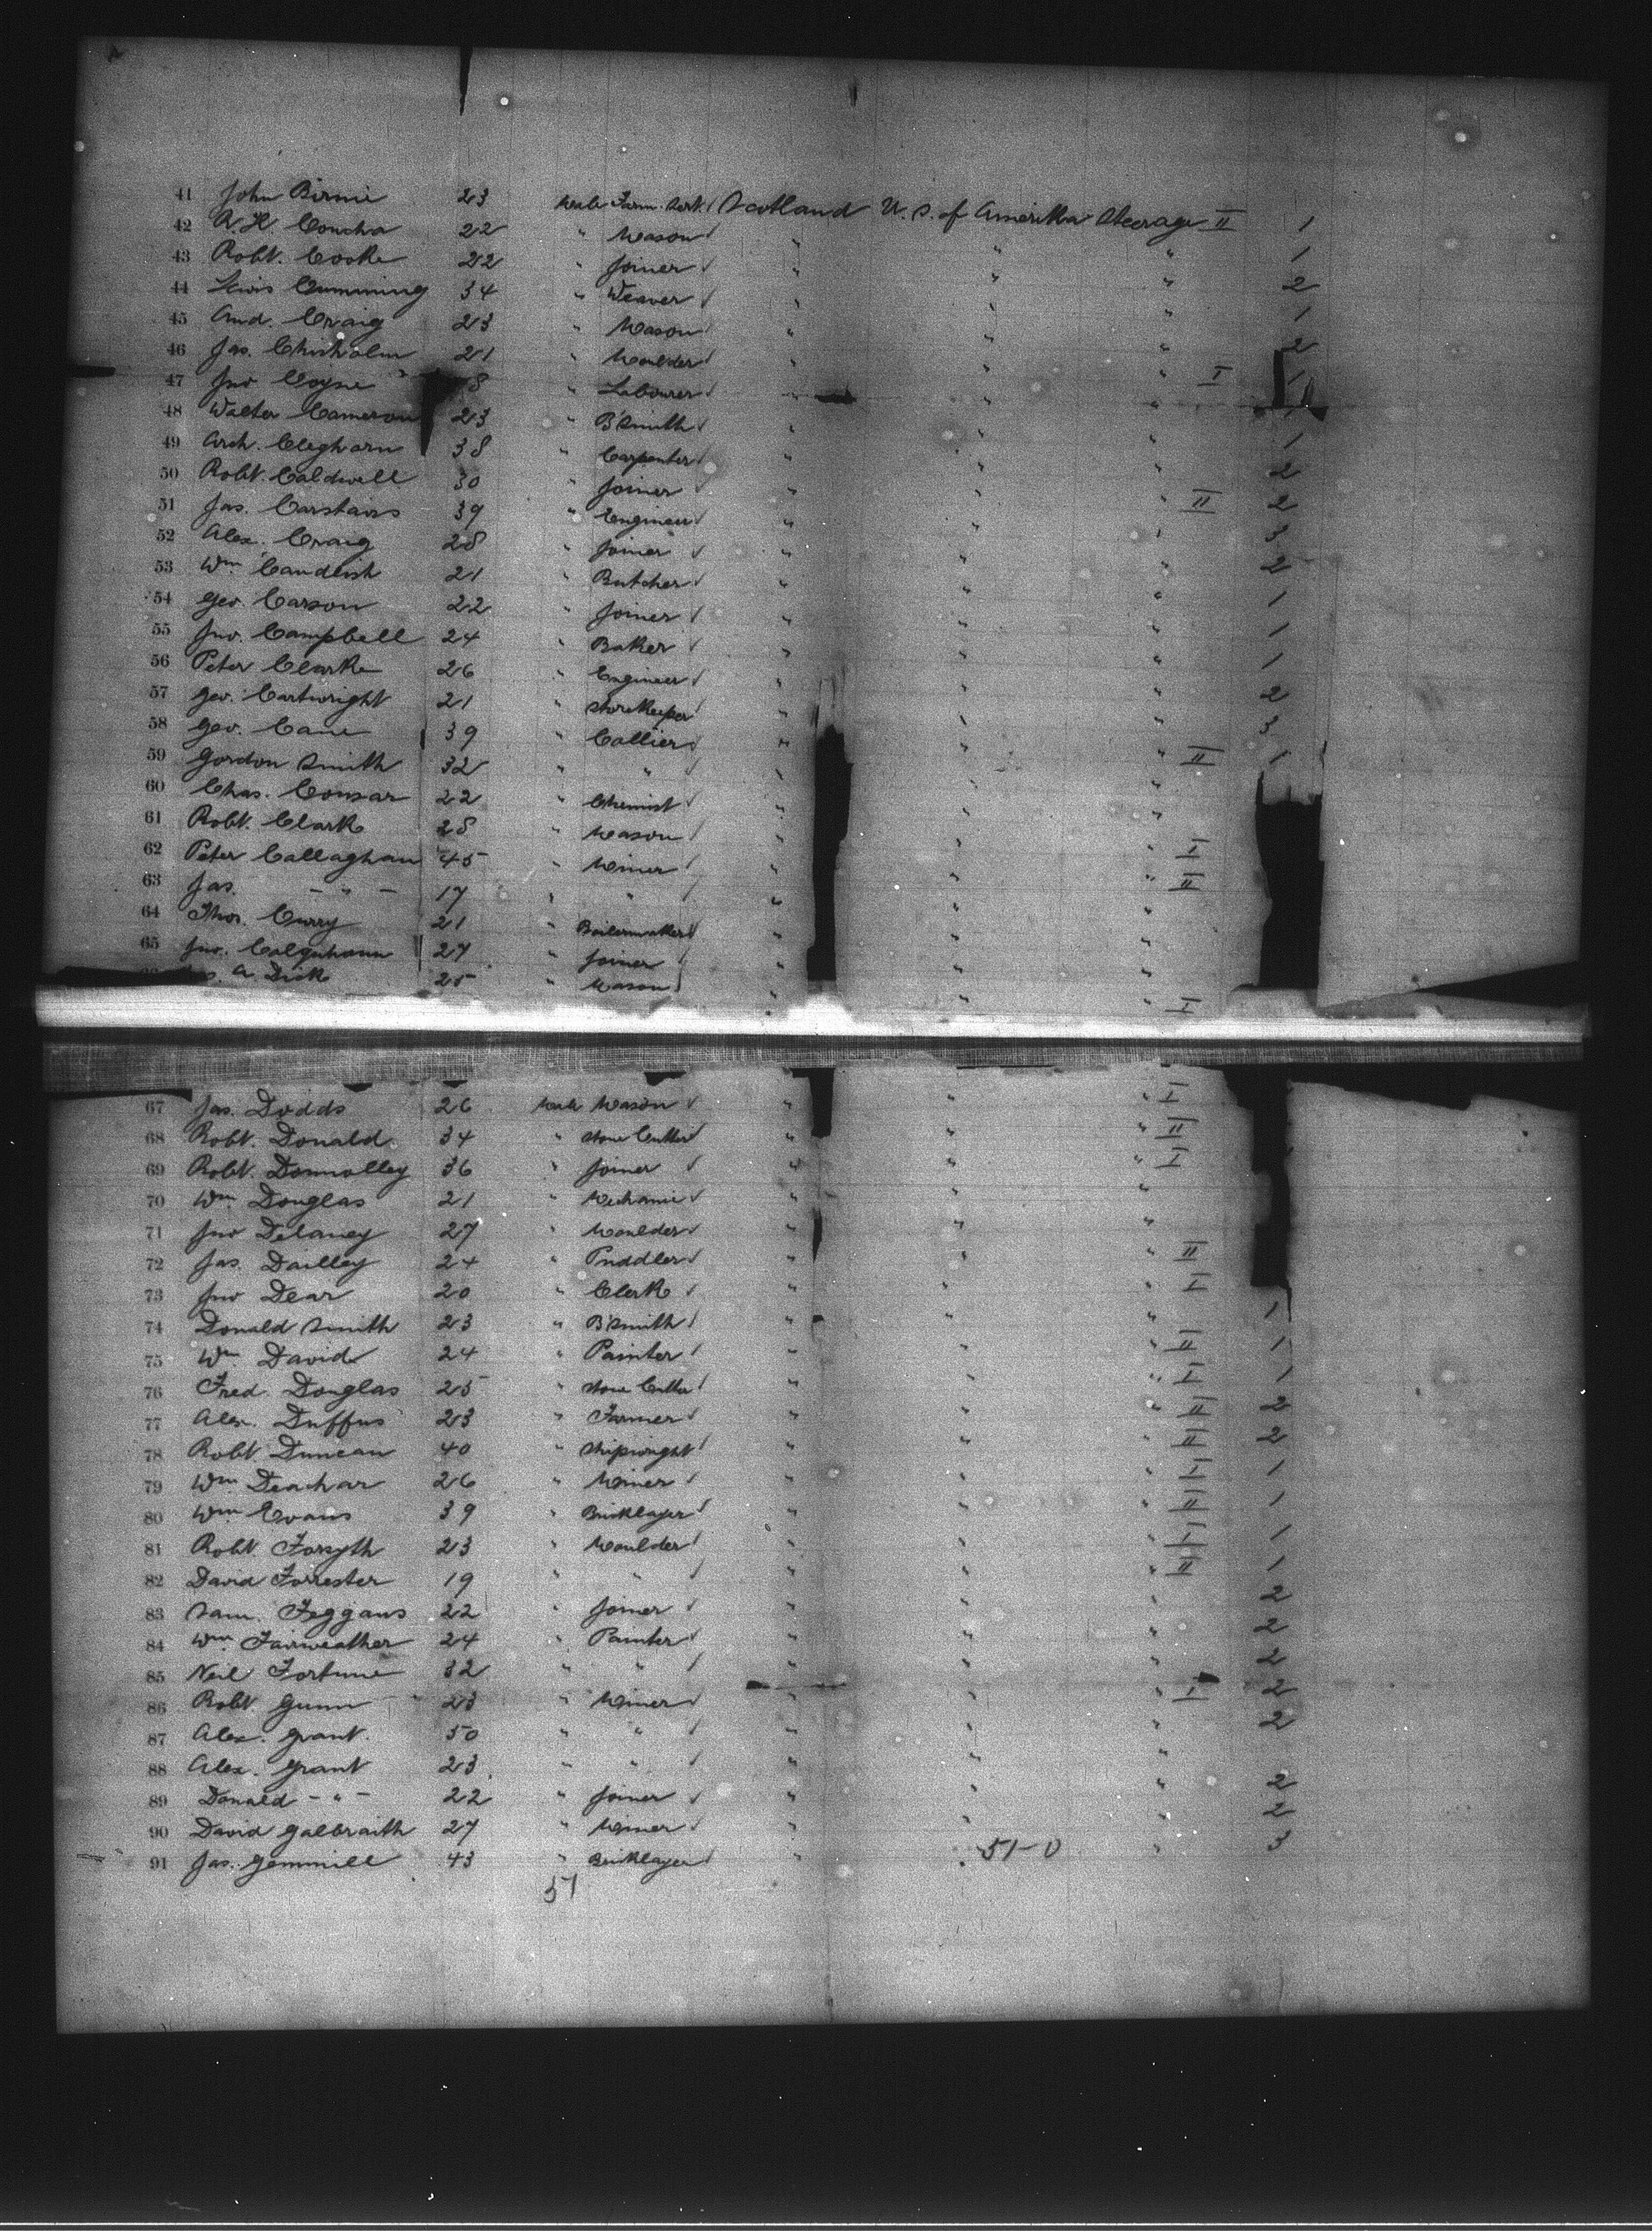 41 John Birnie 23 Male Farm. Serv. Scotland U. S. of Amerika Steerage II 1
42 R. H. Concha 22 " Mason " " " 1
43 Robt. Cooke 22 " Joiner " " " 2
44 Lewis Cumming 34 " Weaver " " " 1
45 And. Craig 23 " Mason " " " 2
46 Jas. Chisholm 21 " Moulder " " " I 1
47 Jno Coyne 8 " Labourer " " "
48 Walter Cameron 23 " B'Smith " " " 1
49 Arch. Cleghorn 38 " Carpenter " " " 2
50 Robt. Caldwell 30 " Joiner " " " II 2
51 Jas. Carstairs 39 " Engineer " " " 3
52 Alex. Craig 28 " Joiner " " " 2
53 Wm Candlish 21 " Butcher " " " 1
54 Geo. Carson 22 " Joiner " " " 1
55 Jno. Campbell 24 " Baker " " " 1
56 Peter Clarke 26 " Engineer " " " 2
57 Geo. Cartwright 21 " Storekeeper " " " 3
58 Geo. Cane 39 " Collier " " " II 1
59 Gordon Smith 32 " " " " "
60 Chas. Conzar 22 " Chemist " " "
61 Robt. Clark 28 " Mason " " " I
62 Peter Callaghan 45 " Miner " " " II
63 Jas. - " - 17 " " " " "
64 Thos. Curry 21 " Boilermaker " " "
65 Jno. Colquhoun 27 " Joiner " " "
A. Dick 25 " Mason " " " I
67 Jas. Dodds 26 Male Mason " " " I
68 Robt. Donald 34 " Stone Cutter " " " II
69 Robt. Donnolley 36 " Joiner " " " I
70 Wm Douglas 21 " Mechanic " " "
71 Jno Delaney 27 " Moulder " " "
72 Jas. Dailley 24 " Puddler " " " II
73 Jno Dear 20 " Clerk " " " I
74 Donald Smith 23 " B'Smith " " " 1
75 Wm David 24 " Painter " " " II 1
76 Fred. Douglas 25 " Stone Cutter " " " I 1
77 Alex. Duffus 23 " Farmer " " " II 2
78 Robt Duncan 40 " Shipwright " " " II 2
79 Wm Deachar 26 " Miner " " " I 1
80 Wm Evans 39 " Bricklayer " " " II 1
81 Robt. Forsyth 23 " Moulder " " " I 1
82 David Forrester 19 " " " " " II 1
83 Sam. Feggans 22 " Joiner " " " 2
84 Wm Fairweather 24 " Painter " " " 2
85 Neil Fortune 32 " " " " " 2
86 Robt. Gunn 23 " Miner " " " I 2
87 Alex. Grant. 50 " " " " " 2
88 Alex. Grant 23 " " " " "
89 Donald - " - 22 " Joiner " " " 2
90 David Galbraith 27 " Miner " " " 2
91 Jas. Gemmill 43 " Bricklayer " 51-0 " 3
51